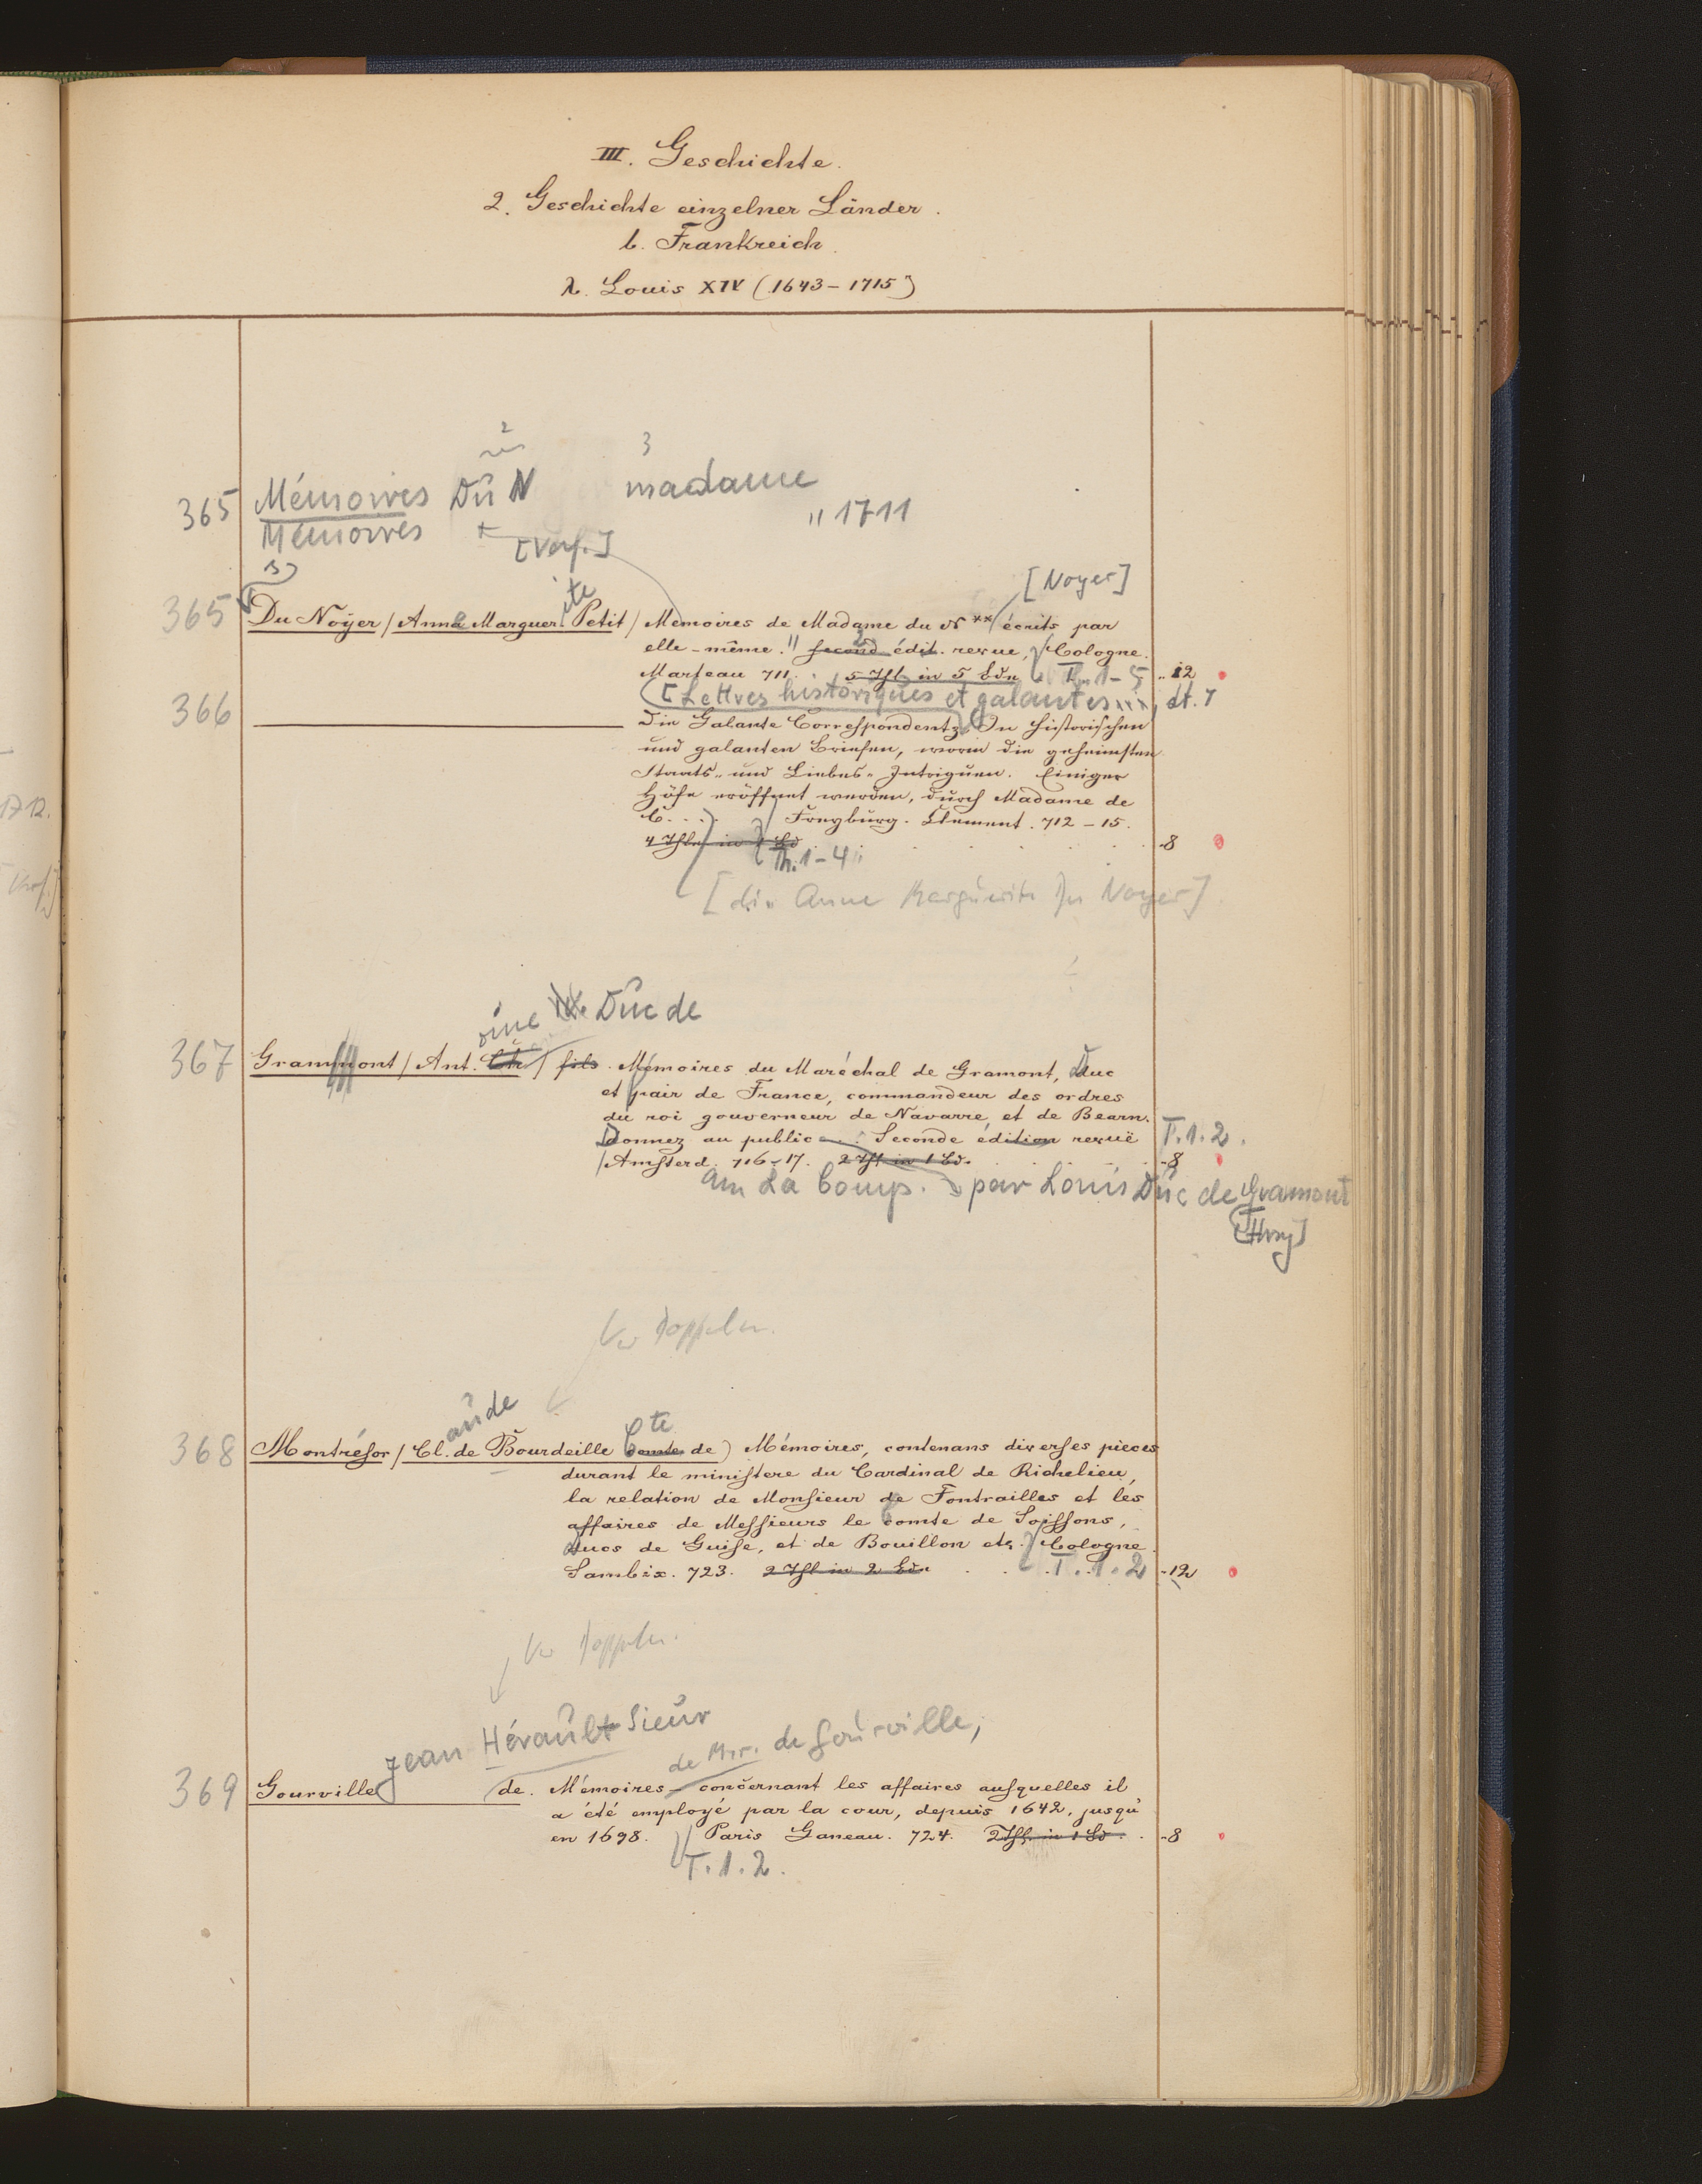 III. Geschichte.
2. Geschichte einzelner Länder.
b. Frankreich.
λ. Louis XIV (1643-1715)
2
3
365 Mémoires Dŭ N madame
Mémoires " 1711
[Verf.]
[Noyer]
ite
365 Du Noÿer / Anna Marguer. Petit / Memoires de Madame du N ** écrits par
elle-même. second édit. revue, Cologne.
Marteau 711. 5 Thl in 5 Bdn T. 1-5 12
[Lettres historiques et galantes...] dt. 7
366 Die Galante Correspondentz. In historischen
und galanten Briefen, worin die geheimsten
Staats- und Liebes-Intriguen. Einiger
Höfe eröffnet werden, durch Madame de
C.... Freyburg. Clement. 712-15.
4 Thle in Bd -8
Th. 1-4
[d.i. Anne Marguerite Du Noyer]
oine Dŭc de
367 Grammont / Ant. / fils. Mémoires du Maréchal de Gramont, Duc
et pair de France, commandeur des ordres
du roi gouverneur de Navarre, et de Bearn.
Donnez au public Seconde édition revuë T. 1. 2.
Amsterd. 716-17. 2 Thl in 1 Bd. -8
La Comp. par Loŭis Dŭc de Gramont
[Hrsg]
Doppeln.
aŭde
Cte
368 Montrésor / Cl. de Bourdeille Comte de) Mémoires, contenans diverses pieces
durant le ministere du Cardinal de Richelieu,
la relation de Monsieur de Fontrailles et les
affaires de Messieurs le Comte de Soissons,
ducs de Guise, et de Bouillon etc. Cologne.
Sambix. 723. 2 Thl in 2 Bdn T. 1. 2 -12
Doppeln.
Jean Héraŭlt Sieŭr
de Mr. de Goŭrville,
369 Gourville de. Mémoires concernant les affaires ausquelles il
a été employé par la cour, depuis 1642, jusqu'
en 1698. Paris Ganeau. 724. 2 Thl. in 1 Bd. -8
T. 1. 2.